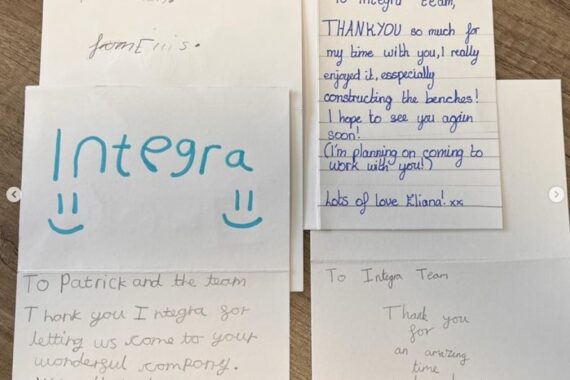 from Eiiis.
Integra
To Patrick and the team
Thank you Integra for
letting us come to your
wonderful company.
To Integra team,
THANKYOU so much for
my time with you, I really
enjoyed it, esspecially
constructing the benches!
I hope to see you again
soon!
(I'm planning on coming to
work with you!)
Lots of love Eliana! xx
To Integra Team
Thank you
for
an amazing
time